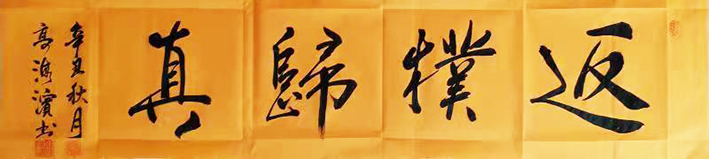 返樸歸真
辛丑秋月
高海濱书